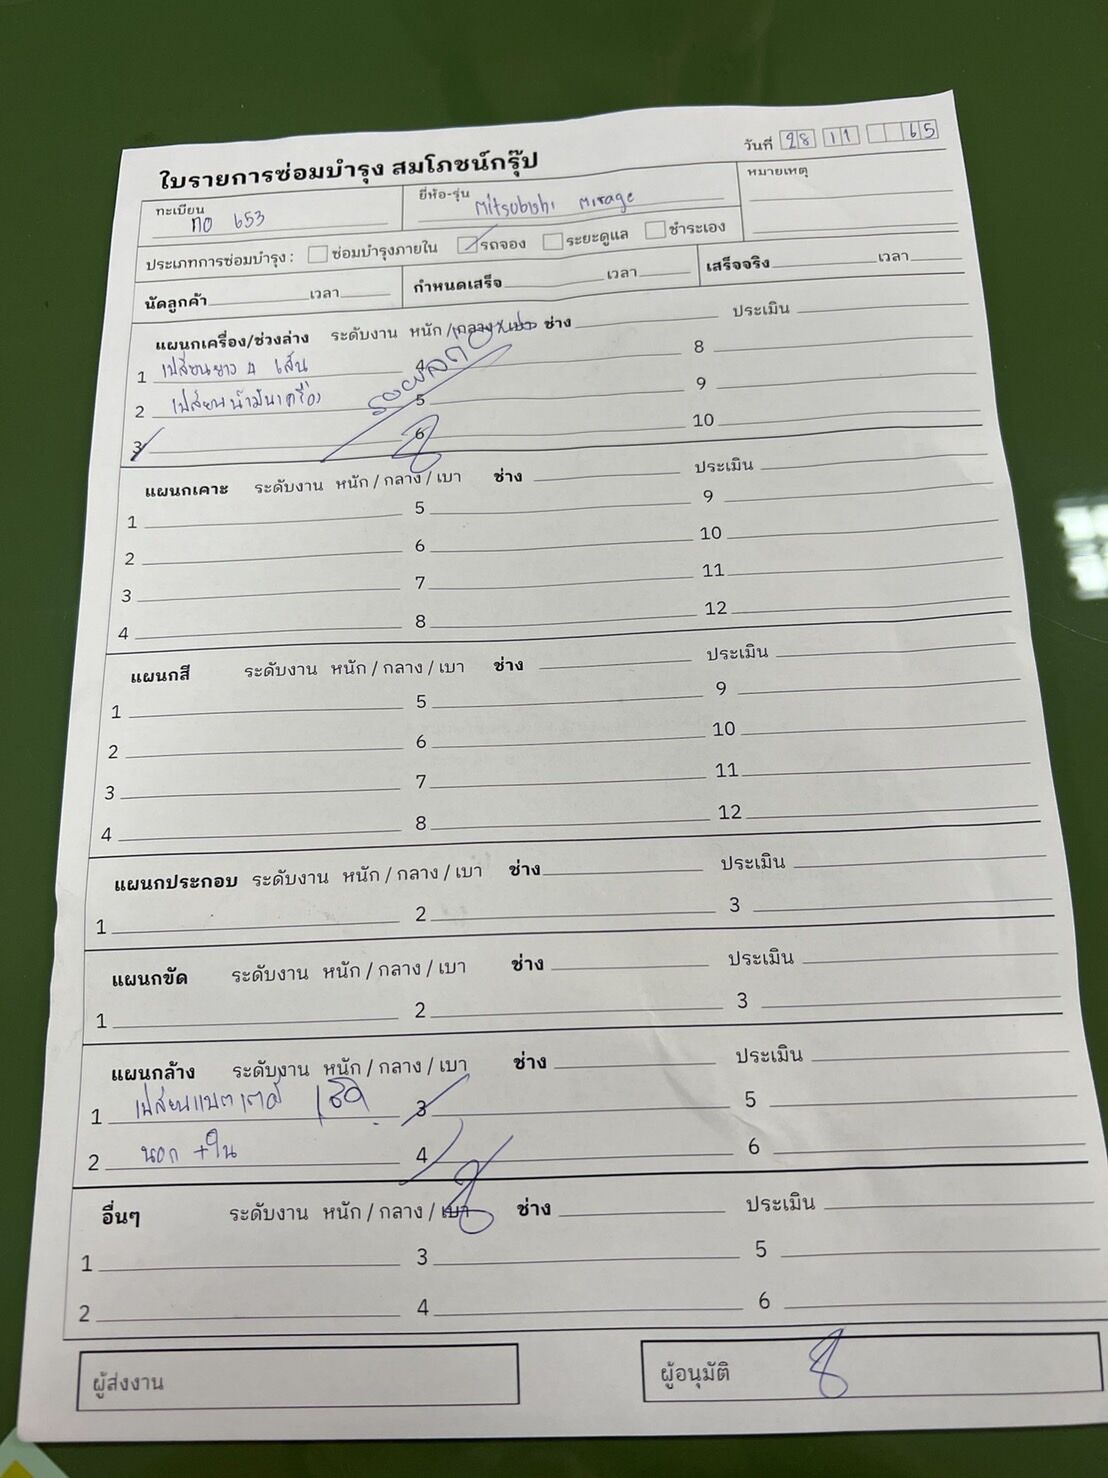 ใบรายการซ่อมบำรุง สมโภชน์กรุ๊ป
วันที่ 28 11 65
ทะเบียน กอ 653
ยี่ห้อ-รุ่น Mitsubishi Mirage
หมายเหตุ
ประเภทการซ่อมบำรุง : ซ่อมบำรุงภายใน รถจอง ระยะดูแล ชำระเอง
นัดลูกค้า เวลา กำหนดเสร็จ เวลา เสร็จจริง เวลา
แผนกเครื่อง/ช่วงล่าง ระดับงาน หนัก / กลาง / เบา ช่าง ประเมิน
1 เปลี่ยนยาง 4 เส้น 4 8
2 เปลี่ยนน้ำมันเครื่อง 5 9
3 6 10
แผนกเคาะ ระดับงาน หนัก / กลาง / เบา ช่าง ประเมิน
1 5 9
2 6 10
3 7 11
4 8 12
แผนกสี ระดับงาน หนัก / กลาง / เบา ช่าง ประเมิน
1 5 9
2 6 10
3 7 11
4 8 12
แผนกประกอบ ระดับงาน หนัก / กลาง / เบา ช่าง ประเมิน
1 2 3
แผนกขัด ระดับงาน หนัก / กลาง / เบา ช่าง ประเมิน
1 2 3
แผนกล้าง ระดับงาน หนัก / กลาง / เบา ช่าง ประเมิน
1 เปลี่ยนแบตเตอรี่ 3 5
2 นอก + ใน 4 6
อื่นๆ ระดับงาน หนัก / กลาง / เบา ช่าง ประเมิน
1 3 5
2 4 6
ผู้ส่งงาน
ผู้อนุมัติ